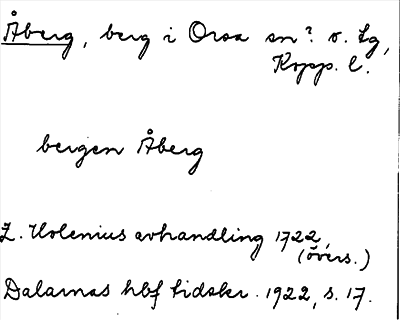 Åberg, berg i Orsa sn? o. Lg,
Kopp. l.
bergen Åberg
Z. Holenius avhandling 1722,
(övers.)
Dalarnas hbf tidskr. 1922, s. 17.